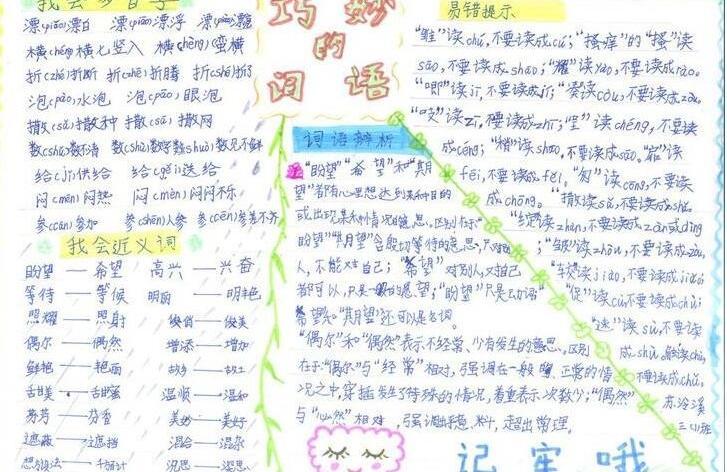 我会多音字
漂(piǎo)漂白 漂(piāo)漂浮 漂(piào)漂亮
横(héng)横七竖八 横(hèng)蛮横
折(zhé)折断 折(zhē)折腾 折(shé)折了
泡(pāo)水泡 泡(pào)眼泡
撒(sǎ)撒种 撒(sā)撒网
数(shǔ)数不清 数(shù)数字 数(shuò)数见不鲜
给(jǐ)供给 给(gěi)送给
闷(mēn)闷热 闷(mèn)闷闷不乐
参(cān)参加 参(shēn)人参 参(cēn)参差不齐
我会近义词
盼望——希望 高兴——兴奋
等待——等候 明丽——明艳
照耀——照射 俊俏——俊美
偶尔——偶然 增添——增加
鲜艳——艳丽
甜美——甜蜜 温顺——温和
芳芳——芬香 美妙——美好
遮蔽——遮挡 混合——混杂
巧妙
的
词语
词语辨析
"盼望""希望"和"期
望"都有心里想达到某种目的
或出现某种情况的意思。区别在于"
盼望""期望"含殷切等待的意思,只对别
人,不能对自己;"希望"对别人,对自己
都可以,只是一般的愿望;"盼望"只是动词
希望和"期望"还可以是名词。
"偶尔"和"偶然"表示不经常、少有发生的意思。区别
在于"偶尔"与"经常"相对,强调在一般的、正常的情
况之中,穿插发生了特殊的情况,着重表示次数少;"偶然"
与"必然"相对,强调出乎意料,超出常理。
易错提示
"雏"读chú,不要读成cú;"搔痒"的"搔"读
sāo,不要读成shao;"耀"读yào,不要读成rào。
"即"读jí,不要读成jì;"凑"读còu,不要读成zòu。
读zī,不要读成zhī;"呈"读chéng,不要读
成céng;"梢"读shāo,不要读成sāo。
fēi,不要读成fēi。"匆"读cōng,不要读
成chōng。"撒"读sā,不要读成shā。
"绽"读zhàn,不要读成zàn或dìng
;"皱"读zhòu,不要读成zòu,
"较"读jiào,不要读成jiǎo
"促"读cù不要读成chù;
"速"读sù,不要读
苏泠溪
三(1)班
记牢哦